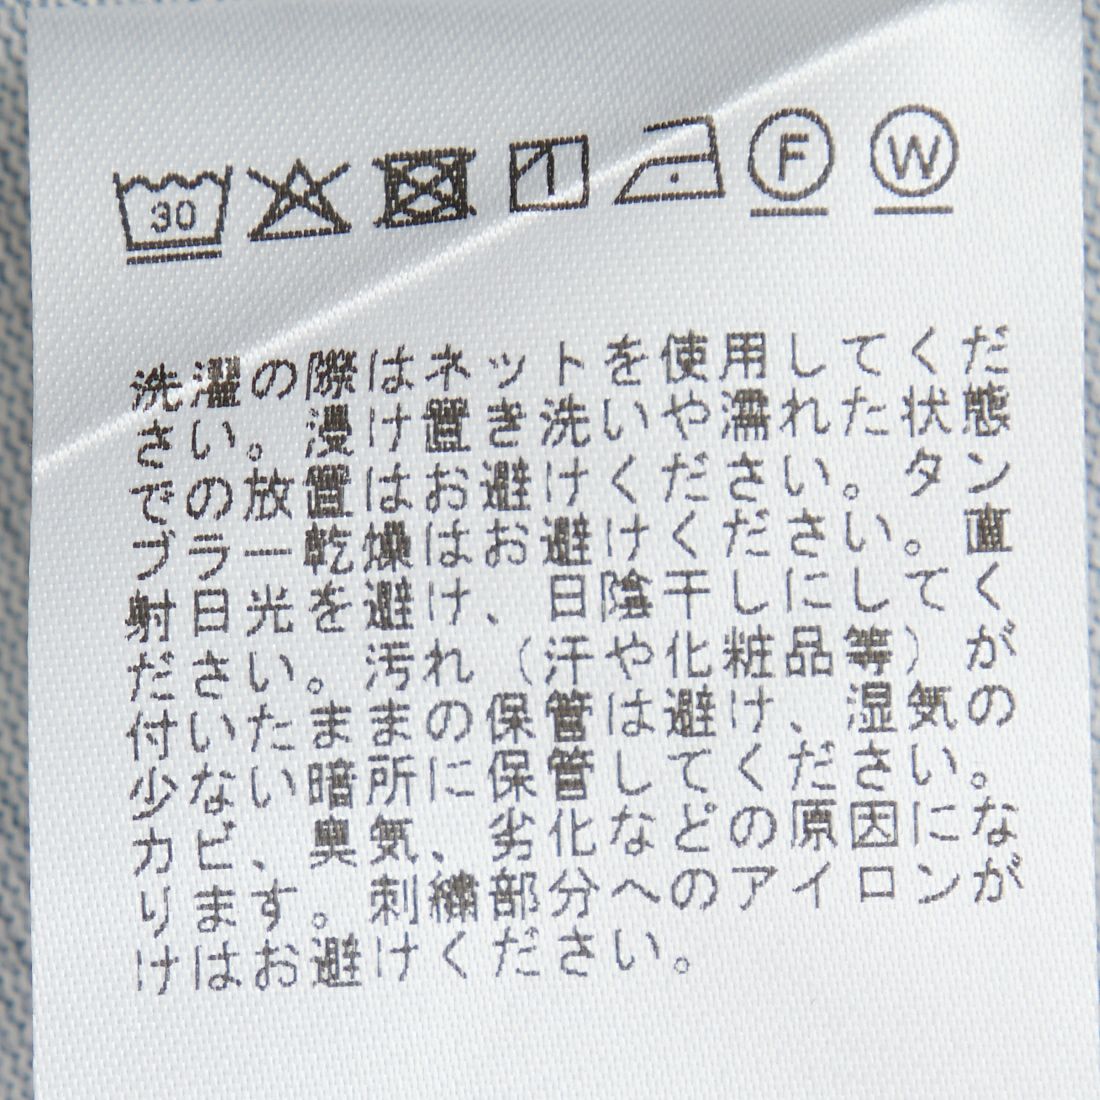 30
F
W
洗濯の際はネットを使用してくだ
さい。浸け置き洗いや濡れた状態
での放置はお避けください。タン
ブラー乾燥はお避けください。直
射日光を避け、日陰干しにしてく
ださい。汚れ（汗や化粧品等）が
付いたままの保管は避け、湿気の
少ない暗所に保管してください。
カビ、臭気、劣化などの原因にな
ります。刺繍部分へのアイロンが
けはお避けください。